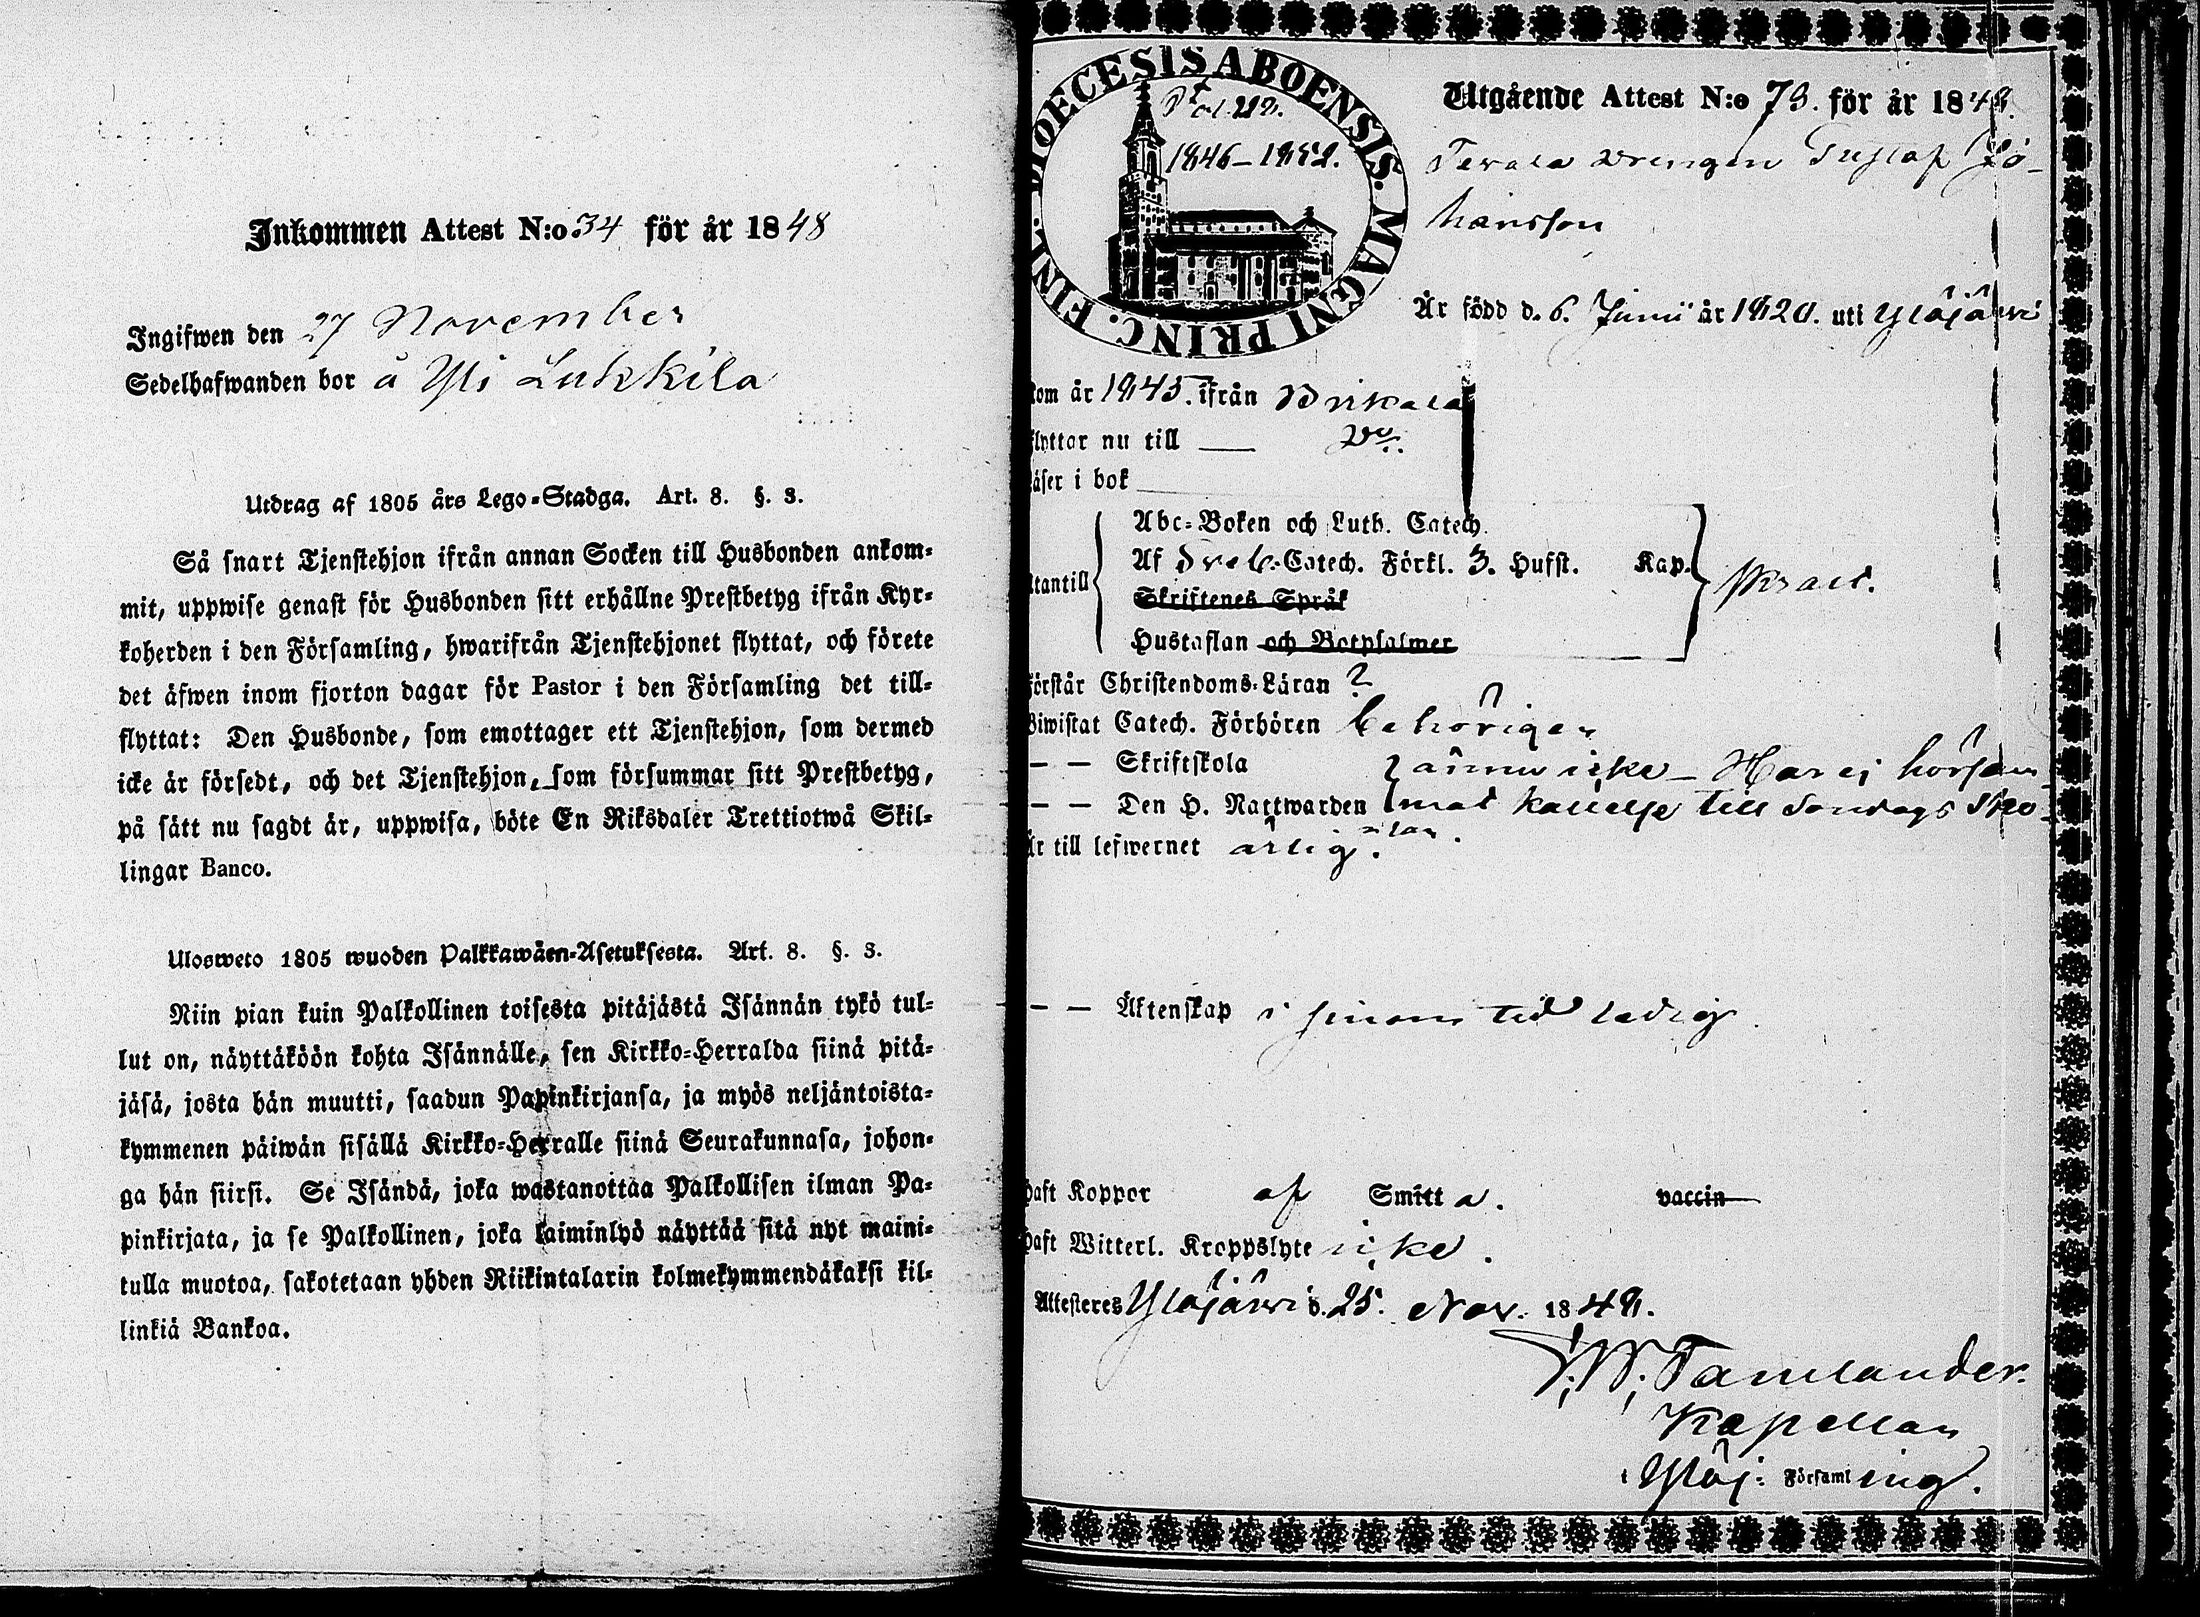 Inkommen Attest N:o 34 för år 1848
Ingifwen den 27 November
Sedelhafwanden bor å Yli Lukkila
Utdrag af 1805 års Lego-Stadga. Art. 8. §. 3.
Så snart Tjenstehjon ifrån annan Socken till Husbonden ankom-
mit, uppwise genast för Husbonden sitt erhållne Prestbetyg ifrån Kyr-
koherden i den Församling, hwarifrån Tjenstehjonet flyttat, och förete
det äfwen inom fjorton dagar för Pastor i den Församling det till-
flyttat: Den Husbonde, som emottager ett Tjenstehjon, som dermed
icke är försedt, och det Tjenstehjon, som försummar sitt Prestbetyg,
på sätt nu sagdt är, uppwisa, böte En Riksdaler Trettiotwå Skil-
lingar Banco.
Ulosweto 1805 wuoden Palkkawäen-Asetuksesta. Art. 8. §. 3.
Niin pian kuin Palkollinen toisesta pitäjästä Isännän tykö tul-
lut on, näyttäköön kohta Isännälle, sen Kirkko-Herralda siinä pitä-
jäsä, josta hän muutti, saadun Papinkirjansa, ja myös neljäntoista-
kymmenen päiwän sisällä Kirkko-Herralle siinä Seurakunnasa, johon-
ga hän siirsi. Se Isändä, joka wastanottaa Palkollisen ilman Pa-
pinkirjata, ja se Palkollinen, joka laiminlyö näyttää sitä nyt maini-
tulla muotoa, sakotetaan yhden Riikintalarin kolmekymmendäkaksi kil-
linkiä Bankoa.
DIOECESIS ABOENSIS. MAGNI PRINC. FINL.
1846-1852.
Utgående Attest N:o 73. för år 1848.
Tavala drengen Gustaf Jo-
hansson
Är född d. 6. Junii år 1820. uti Ylöjärwi
kom år 1845. ifrån Birkala
flyttar nu till — Do.
läser i bok
utantill
Abc-Boken och Luth. Catech.
Af Catech. Förkl. 3. Hufst. Kap.
Skriftenes Språk
Hustaflan och Botpsalmer
svart.
förstår Christendoms-Läran ?
Biwistat Catech. Förhören behörigen
— — Skriftskola
— — Den H. Nattwarden
ännu icke — Har ej hörsam-
mat kallelse till Söndags Sko-
lan.
Är till lefwernet ärlig.
— — Äktenskap i sinom tid ledig.
haft Koppor af Smitta. vaccin
haft Witterl. Kroppslyte icke.
Attesteres Ylöjärwi d. 25. Nov. 1848.
Tamlander.
Kapellan
i Ylöj: Församling.